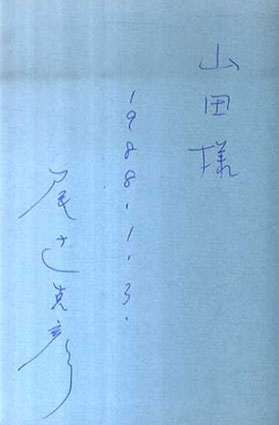 山田様
1988.1.3.
尾辻克彦